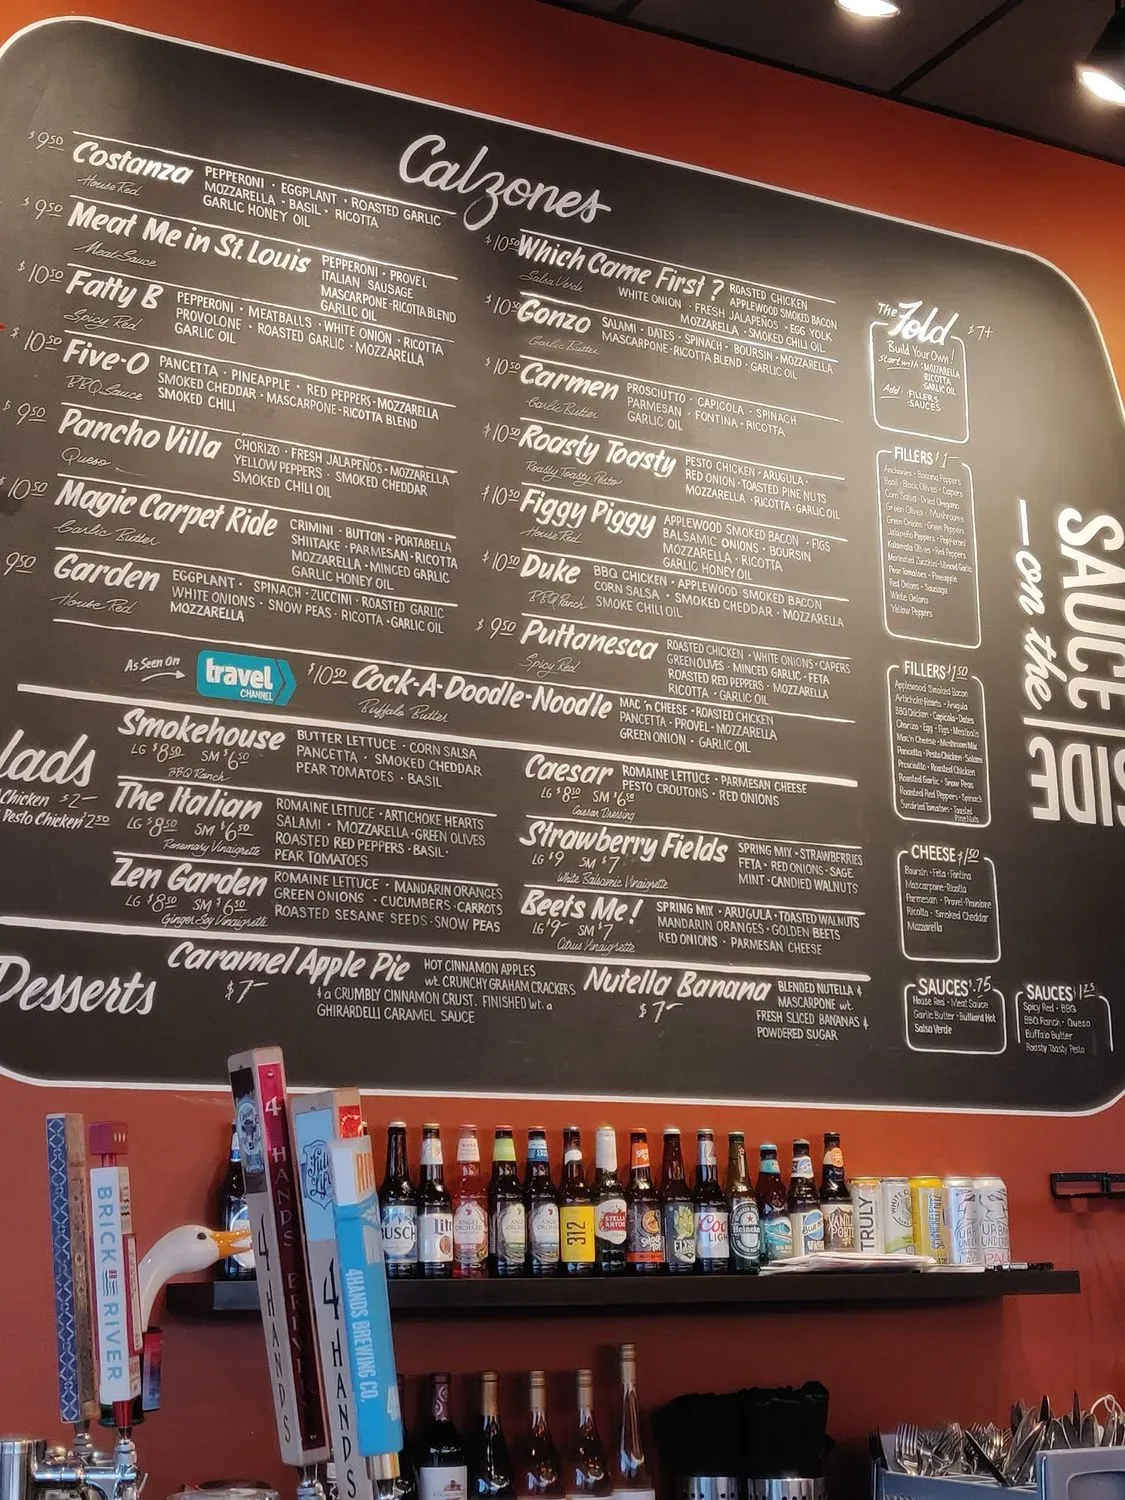 Calzones
$9.50 Costanza
House Red
PEPPERONI · EGGPLANT · ROASTED GARLIC
MOZZARELLA · BASIL · RICOTTA
GARLIC HONEY OIL
$9.50 Meat Me in St. Louis
Meat Sauce
PEPPERONI · PROVEL
ITALIAN SAUSAGE
MASCARPONE-RICOTTA BLEND
GARLIC OIL
$10.50 Fatty B
Spicy Red
PEPPERONI · MEATBALLS · WHITE ONION · RICOTTA
PROVOLONE · ROASTED GARLIC · MOZZARELLA
GARLIC OIL
$10.50 Five-O
BBQ Sauce
PANCETTA · PINEAPPLE · RED PEPPERS · MOZZARELLA
SMOKED CHEDDAR · MASCARPONE-RICOTTA BLEND
SMOKED CHILI
$9.50 Pancho Villa
Queso
CHORIZO · FRESH JALAPEÑOS · MOZZARELLA
YELLOW PEPPERS · SMOKED CHEDDAR
SMOKED CHILI OIL
10.50 Magic Carpet Ride
Garlic Butter
CRIMINI · BUTTON · PORTABELLA
SHIITAKE · PARMESAN · RICOTTA
MOZZARELLA · MINCED GARLIC
GARLIC HONEY OIL
9.50 Garden
House Red
EGGPLANT · SPINACH · ZUCCINI · ROASTED GARLIC
WHITE ONIONS · SNOW PEAS · RICOTTA · GARLIC OIL
MOZZARELLA
$10.50 Which Came First?
Salsa Verde
ROASTED CHICKEN
WHITE ONION · FRESH JALAPEÑOS · EGG YOLK
APPLEWOOD SMOKED BACON
MOZZARELLA · SMOKED CHILI OIL
$10.50 Gonzo
Garlic Butter
SALAMI · DATES · SPINACH · BOURSIN · MOZZARELLA
MASCARPONE-RICOTTA BLEND · GARLIC OIL
$10.50 Carmen
Garlic Butter
PROSCIUTTO · CAPICOLA · SPINACH
PARMESAN · FONTINA · RICOTTA
GARLIC OIL
$10.50 Roasty Toasty
Roasty Toasty Pesto
PESTO CHICKEN · ARUGULA ·
RED ONION · TOASTED PINE NUTS
MOZZARELLA · RICOTTA · GARLIC OIL
$10.50 Figgy Piggy
House Red
APPLEWOOD SMOKED BACON · FIGS
BALSAMIC ONIONS · BOURSIN
MOZZARELLA · RICOTTA
GARLIC HONEY OIL
$10.50 Duke
BBQ Ranch
BBQ CHICKEN · APPLEWOOD SMOKED BACON
CORN SALSA · SMOKED CHEDDAR · MOZZARELLA
SMOKE CHILI OIL
$9.50 Puttanesca
Spicy Red
ROASTED CHICKEN · WHITE ONIONS · CAPERS
GREEN OLIVES · MINCED GARLIC · FETA
ROASTED RED PEPPERS · MOZZARELLA
RICOTTA · GARLIC OIL
As Seen On
travel
CHANNEL
$10.50 Cock-A-Doodle-Noodle
Buffalo Butter
MAC 'n CHEESE · ROASTED CHICKEN
PANCETTA · PROVEL · MOZZARELLA
GREEN ONION · GARLIC OIL
The Fold $7+
Build Your Own!
Start with: · MOZZARELLA
· RICOTTA
· GARLIC OIL
Add: · FILLERS
· SAUCES
FILLERS $1-
Anchovies · Banana Peppers
Basil · Black Olives · Capers
Corn Salsa · Dried Oregano
Green Olives · Mushrooms
Green Onions · Green Peppers
Jalapeño Peppers · Pepperoni
Kalamata Olives · Red Peppers
Marinated Zucchini · Minced Garlic
Pear Tomatoes · Pineapple
Red Onions · Sausage
White Onions
Yellow Peppers
FILLERS $1.50
Applewood Smoked Bacon
Artichoke Hearts · Arugula
BBQ Chicken · Capicola · Dates
Chorizo · Egg · Figs · Meatballs
Mac'n Cheese · Mushroom Mix
Pancetta · Pesto Chicken · Salami
Prosciutto · Roasted Chicken
Roasted Garlic · Snow Peas
Roasted Red Peppers · Spinach
Sundried Tomatoes · Toasted
Pine Nuts
CHEESE $1.50
Boursin · Feta · Fontina
Mascarpone-Ricotta
Parmesan · Provel · Provolone
Ricotta · Smoked Cheddar
Mozzarella
SAUCES $.75
House Red · Meat Sauce
Garlic Butter · Bulliard Hot
Salsa Verde
SAUCES $1.25
Spicy Red · BBQ
BBQ Ranch · Queso
Buffalo Butter
Roasty Toasty Pesto
SAUCE
on the
SIDE
lads
Chicken $2-
Pesto Chicken 2.50
Smokehouse
LG $8.50 SM $6.50
BBQ Ranch
BUTTER LETTUCE · CORN SALSA
PANCETTA · SMOKED CHEDDAR
PEAR TOMATOES · BASIL
The Italian
LG $8.50 SM $6.50
Rosemary Vinaigrette
ROMAINE LETTUCE · ARTICHOKE HEARTS
SALAMI · MOZZARELLA · GREEN OLIVES
ROASTED RED PEPPERS · BASIL ·
PEAR TOMATOES
Zen Garden
LG $8.50 SM $6.50
Ginger Soy Vinaigrette
ROMAINE LETTUCE · MANDARIN ORANGES
GREEN ONIONS · CUCUMBERS · CARROTS
ROASTED SESAME SEEDS · SNOW PEAS
Caesar
LG $8.50 SM $6.50
Caesar Dressing
ROMAINE LETTUCE · PARMESAN CHEESE
PESTO CROUTONS · RED ONIONS
Strawberry Fields
LG $9 SM $7
White Balsamic Vinaigrette
SPRING MIX · STRAWBERRIES
FETA · RED ONIONS · SAGE
MINT · CANDIED WALNUTS
Beets Me!
LG $9- SM $7
Citrus Vinaigrette
SPRING MIX · ARUGULA · TOASTED WALNUTS
MANDARIN ORANGES · GOLDEN BEETS
RED ONIONS · PARMESAN CHEESE
Desserts
Caramel Apple Pie
$7-
HOT CINNAMON APPLES
wt. CRUNCHY GRAHAM CRACKERS
& a CRUMBLY CINNAMON CRUST. FINISHED wt. a
GHIRARDELLI CARAMEL SAUCE
Nutella Banana
$7-
BLENDED NUTELLA &
MASCARPONE wt.
FRESH SLICED BANANAS &
POWDERED SUGAR
BRICK RIVER
4 HANDS
4 HANDS
4 HANDS
4HANDS BREWING CO.
BUSCH
Lite
312
STELLA ARTOIS
Heineken
TRULY
WHITE C
URB